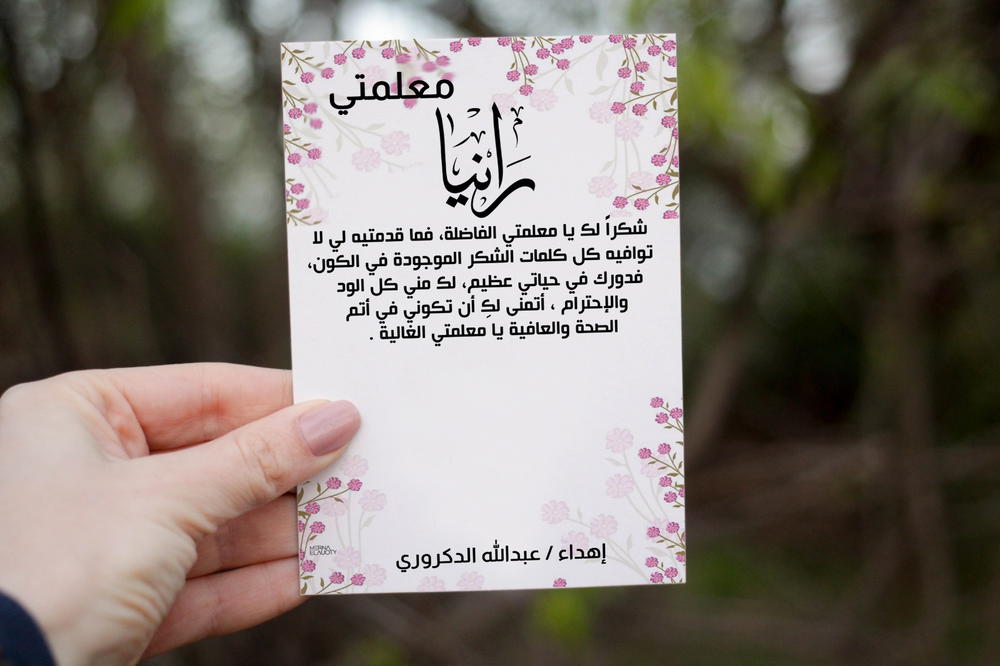 معلمتي
رانيا
شكراً لك يا معلمتي الفاضلة، فما قدمتيه لي لا
توافيه كل كلمات الشكر الموجودة في الكون،
فدورك في حياتي عظيم، لك مني كل الود
والإحترام ، أتمنى لكِ أن تكوني في أتم
الصحة والعافية يا معلمتي الغالية .
إهداء / عبدالله الدكروري
MERNA
ELADOTY